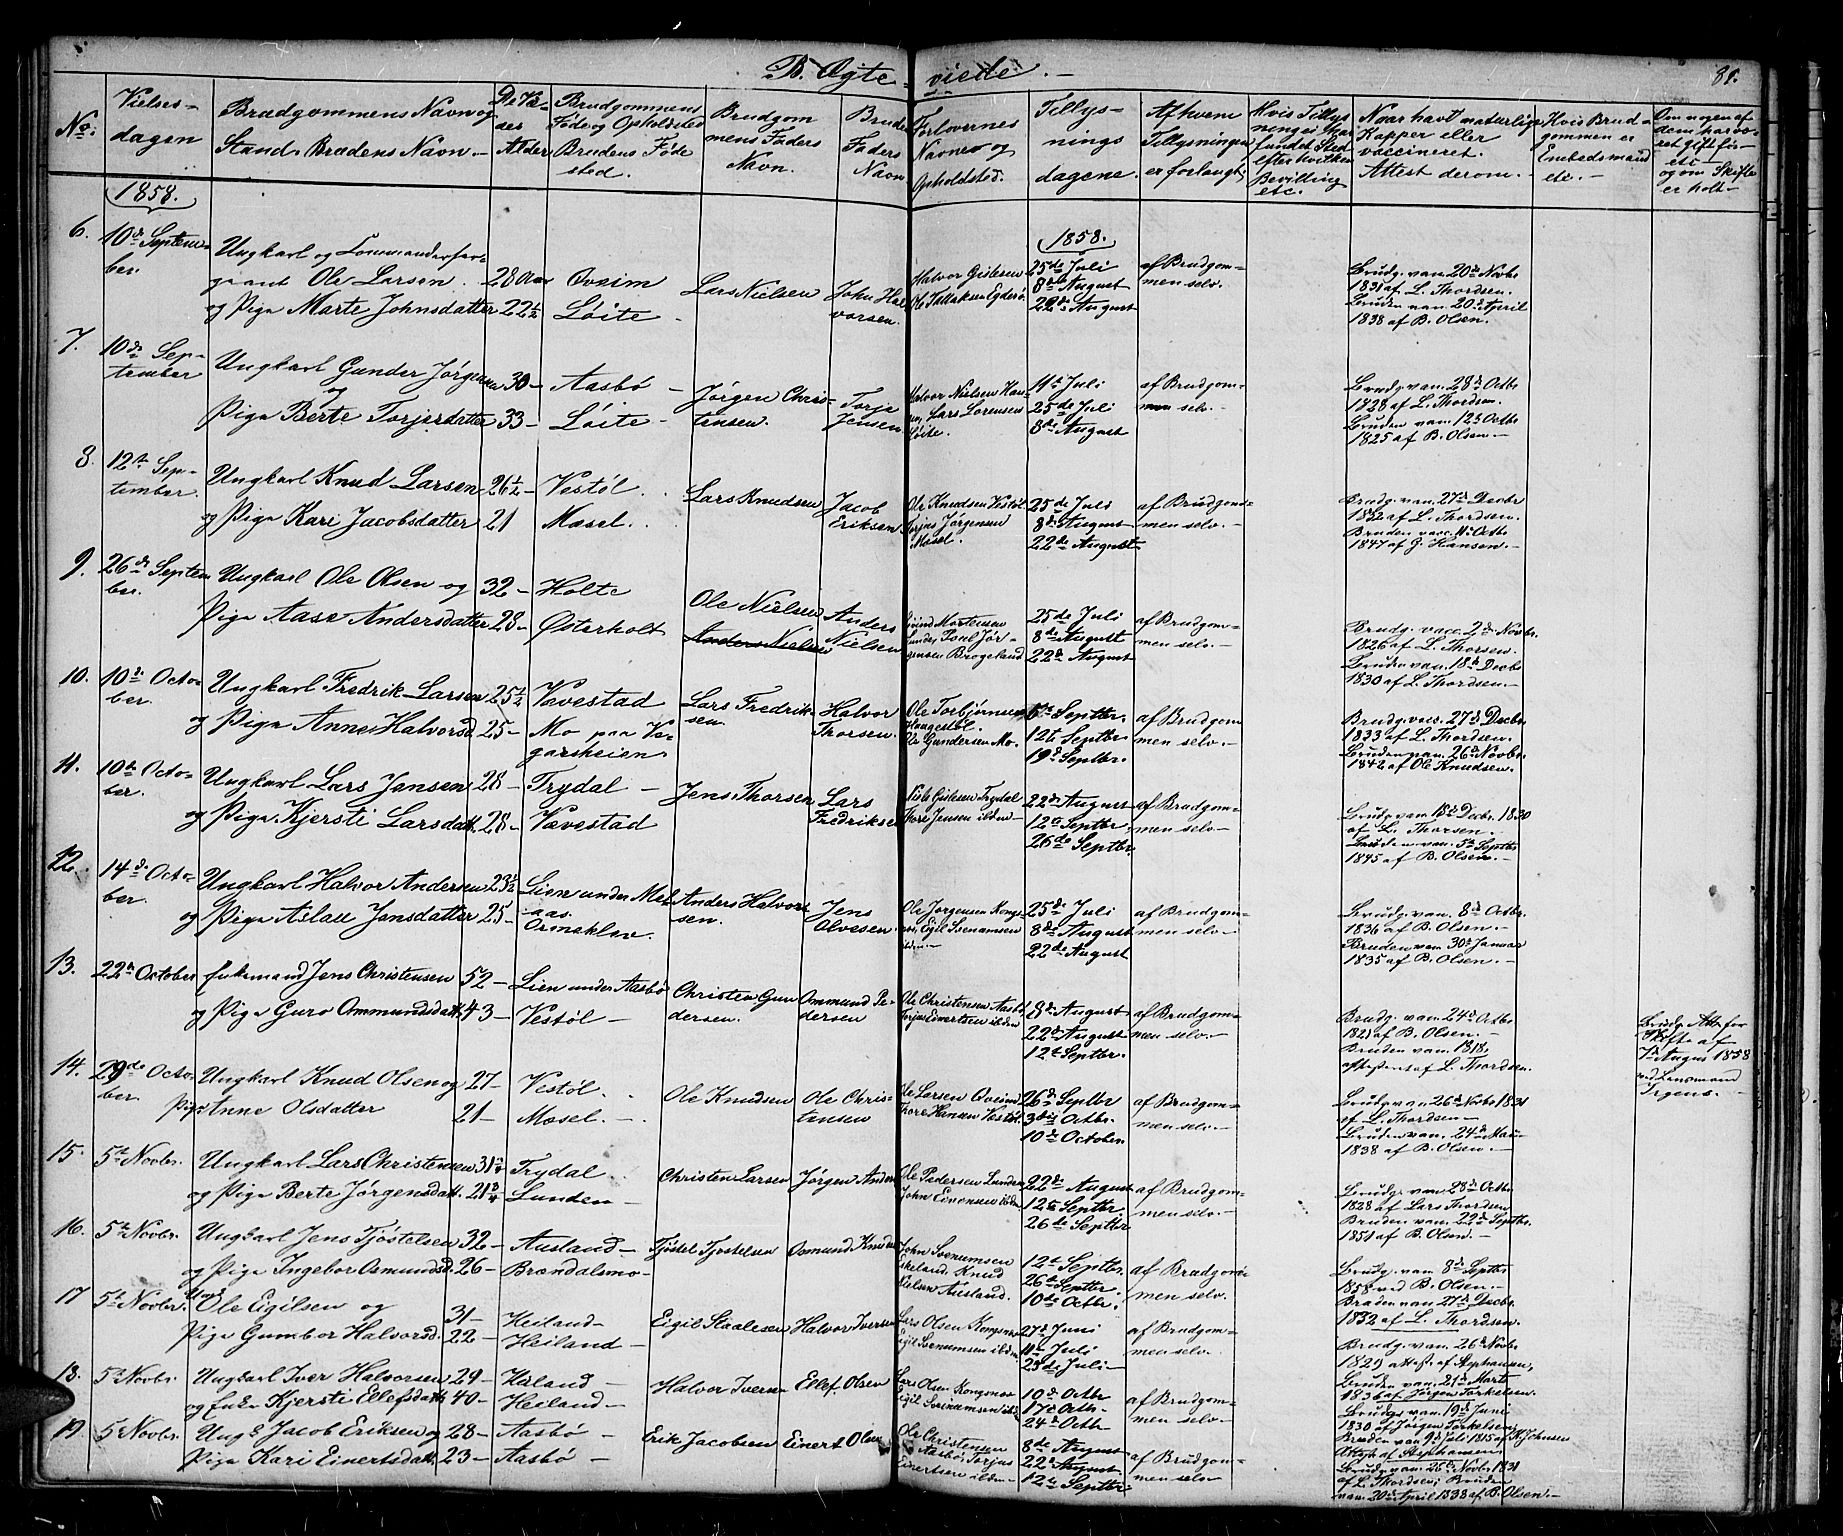 B. Ægte-viede.
89.
No.
Vielses-
dagen
Brudgommens Navn og
Stand. Brudens Navn.
De Vi-
des
Alder
Brudgommens
Føde og Opholdsted
Brudens Føde
sted.
Brudgom
mens Faders
Navn.
Brudens
Faders
Navn
Forlovernes
Navne og
Opholdsted.
Tillys-
nings
dagene.
Af hvem
Tillysningen
er forlangt.
Hvis Tillys
ning ei har
fundet Sted
efter hvilken
Bevilling
etc.
Naar havt naturlige
Kopper eller
vaccineret.
Attest derom.
Hvis Brud-
gommen er
Embedsmand
etc.
Om nogen af
dem har væ-
ret gift før-
etc
og om Skifte
er holt
1858.
1858.
6.
10de Septem-
ber.
Ungkarl og Commandersser-
geant Ole Larsen
og Pige Marte Johnsdatter
28 Aar
22½
Qveim
Løite
Lars Nielsen
John Hal-
vorsen.
Halvor Gislesen
Ole Tellaksen
25de Juli
8de August
22de August
af Brudgom-
men selv.
Brudg. van. 20de Novbr
1831 af L. Thordsen.
Bruden van. 20de April
1838 af B. Olsen.
7.
10de Sep-
tember
Ungkarl Gunder Jørgensen
og
Pige Berte Torjersdatter
30
33
Aasbø
Løite
Jørgen Chris-
tensen.
Torje
Jensen
Halvor Nielsen
Lars Lorensen
Løite.
11te Juli
25de Juli
8de August
af Brudgom-
men selv.
Brudg. van. 28de Octbr
1828 af L. Thordsen.
Bruden van. 12te Octbr
1825 af B. Olsen.
8.
12te Sep-
tember.
Ungkarl Knud Larsen
og Pige Kari Jacobsdatter
26½
21
Vestøl
Mæsel
Lars Knudsen
Jacob
Eriksen
Ole Knudsen Vestøl
Torjus Jørgensen
Mæsel.
25de Juli
8de August
22de August
af Brudgom-
men selv.
Brudg. van. 27de Decbr
1832 af L. Thordsen.
Bruden vacc. 11te Octbr
1847 af G. Hansen.
9.
26de Septem
ber.
Ungkarl Ole Olsen og
Pige Aase Andersdatter
32
28
Holte
Østerholt
Ole Nielsen
Anders Nielsen
Anders
Nielsen
Eivind Mortensen
Lunde, Poul Jør-
gensen Brogeland
25de Juli
8de August
22de August
af Brudgom-
men selv.
Brudg. vacc. 2de Novbr.
1826 af L. Thorsen.
Bruden van. 18de Decbr
1830 af L. Thordsen.
10.
10de Octo-
ber.
Ungkarl Fredrik Larsen
og Pige Anne Halvorsd.
25½
25
Vavestad
Mo paa Ve-
garsheien
Lars Fredrik-
sen.
Halvor
Thorsen.
Ole Torbjørnsen
Haugestøl.
Ole Gundersen Mo.
5te Septbr.
12te Septbr.
19de Septbr.
af Brudgom
men selv.
Brudg. vacc. 27de Decbr.
1833 af L. Thordsen.
Bruden van. 26de Novbr.
1842 af Ole Knudsen.
11.
10de Octo-
ber.
Ungkarl Lars Jensen
og Pige Kjersti Larsdatt.
28
28
Trydal
Vavestad
Jens Thorsen
Lars
Fredriksen
Gislesen Trydal
Thore Jensen ibiden
22de August
12te Septbr
26de Septbr.
af Brudgom-
men selv.
Brudg. van. 18de Decbr. 1830
af L. Thorsen.
Bruden van. 5te Septbr
1845 af B. Olsen.
12.
14de Octo-
ber.
Ungkarl Halvor Andersen
og Pige Aslau Jensdatter
23½
25
Lien under Mel-
aas.
Ormsklev.
Anders Halvor-
sen.
Jens
Olvesen.
Ole Jørgensen
Eigil Svenumsen
ibiden
25de Juli
8de August
22de August
af Brudgom-
men selv.
Brudg. van. 8de Octbr.
1836 af B. Olsen.
Bruden van. 30de Januar
1835 af B. Olsen.
13.
22de October
Enkemand Jens Christensen
og Pige Guro Ommundsdatt.
52
43
Lien under Aasbø
Vestøl
Christen Gun
dersen.
Ommund Pe-
dersen
Ole Christensen Aasbø
Torjus Einertsen ibiden
8de August
22de August
12te Septbr.
af Brudgom-
men selv.
Brudg. van. 24de Octbr
1821 af B. Olsen.
Bruden van. 1818.
attesteret af L. Thordsen.
Brudg. Att. for
Skifte af
7de August 1858
ved Lensmand
Irgens.
14.
29de Octo-
ber.
Ungkarl Knud Olsen og
Pige Anne Olsdatter
27
21
Vestøl
Mæsel
Ole Knudsen
Ole Chris-
tensen
Ole Larsen Qveim
Thore Hansen Vestøl.
26de Septbr
3die Octbr.
10de October
af Brudgom-
men selv.
Brudg. van. 26de Novbr 1831
af L. Thordsen.
Bruden van. 24de
1838 af B. Olsen.
15.
5te Novbr.
Ungkarl Lars Christensen
og Pige Berte Jørgensdatt.
31¾
21¾
Trydal
Lunden
Christen Larsen
Jørgen Anders
Ole Pedersen Lunden
John Einersen ibiden
22de August
12te Septbr.
26de Septbr
af Brudgom-
men selv.
Brudg. van. 28de Octbr
1828 af Lars Thordsen
Bruden van. 22de Septbr.
1851 af B. Olsen.
16.
5te Novbr.
Ungkarl Jens Tjøstelsen
og Pige Ingebor Osmundsd.
32
26
Ausland
Brændalsmo
Tjøstel Tjostelsen
Osmund Knuds
John Svenumsen
Eikeland Knud
Nielsen Ausland.
12te Septbr.
26de Septbr.
10de Octbr.
af Brudgom-
men selv.
Brudg. van. 8de Septbr
1858 ved B. Olsen.
Bruden van. 27de Decbr.
1832 af L. Thordsen.
17
5te Novbr.
Ungk. Ole Eigilsen og
Pige Gumbor Halvorsd.
31
22
Heiland
Heiland
Eigil Staalesen
Halvor Iversen
Lars Olsen
Eigil Svenumsen ibiden
27de Juni
11te Juli
25de Juli
af Brudgom-
men selv.
Brudg. van. 26de Novbr
1829 attest. af Stephansen,
Bruden van. 21de Marts
1836 af Jørgen Torkelsen.
18.
5te Novbr.
Ungkarl Iver Halvorsen
og Enke Kjersti Ellefsdatt.
29
40
Heiland
Heiland
Halvor Iversen
Ellef Olsen
Lars Olsen
Eigil Svenumsen ibiden
10de Octbr
17de Octbr.
24de Octbr
af Brudgom-
men selv.
Brudg. van. 19de Juni
1830 af Jørgen Torkelsen.
Bruden van. 9de Juli 1815 af K. Johnsen
Attest. af Stephansen
19.
5 Novbr.
Ungk. Jacob Eriksen og
Pige Kari Einertsdatt.
28
23
Aasbø
Aasbø
Erik Jacobsen
Einert Olsen
Ole Christensen
Aasbø, Torjus
Einertsen ibiden
8de August
22de August
12te Septbr.
af Brudgom-
men selv
Brudg. van. 26de Novbr 1831
af L. Thordsen; Bruden
van. 20de April 1838 af B. Olsen.